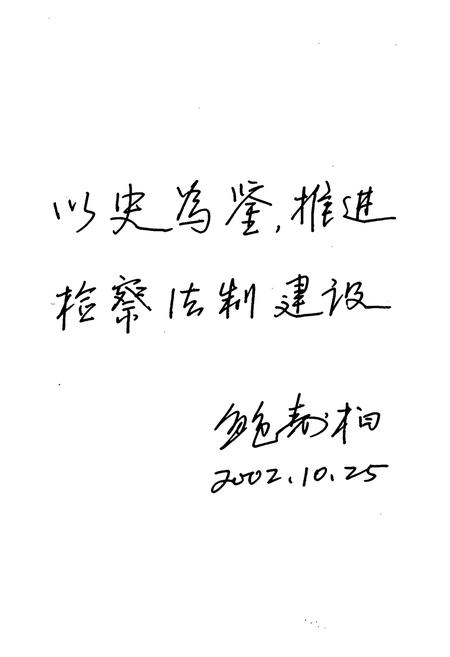 以史为鉴,推进
检察法制建设
鲍寿柏
2002.10.25